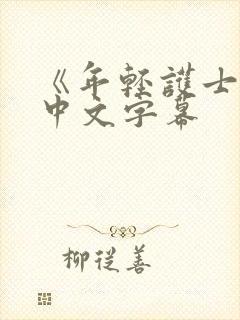 《年輕護士
中文字幕
柳從善